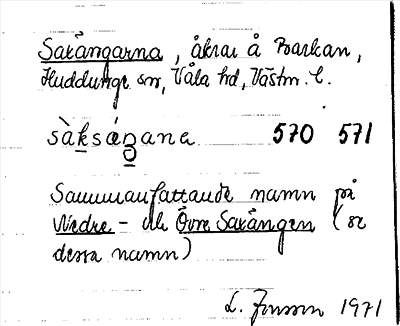 Saxängarna, åkrar å Backan,
Huddunge sn, Våla hd, Västm. l.
sàksáŋana 570 571
Sammanfattande namn på
Nedre- och Övre Saxängen (se
dessa namn)
L. Jonsson 1971